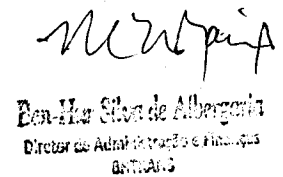 Ben-Hur Silva de Albergaria
Diretor de Administração e Finanças
BHTRANS